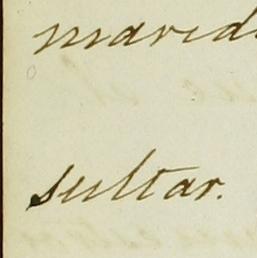 marid
sultar.